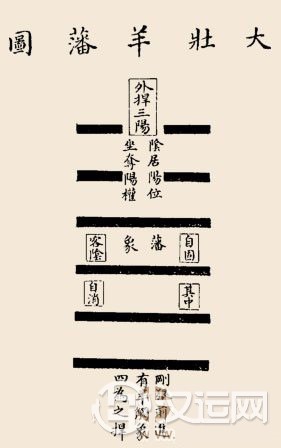 大壯羊藩圖
外捍三陽
陰居陽位
坐奪陽權
自固
藩象
客陰
其中
自消
剛前進
有羊象
四為之捍